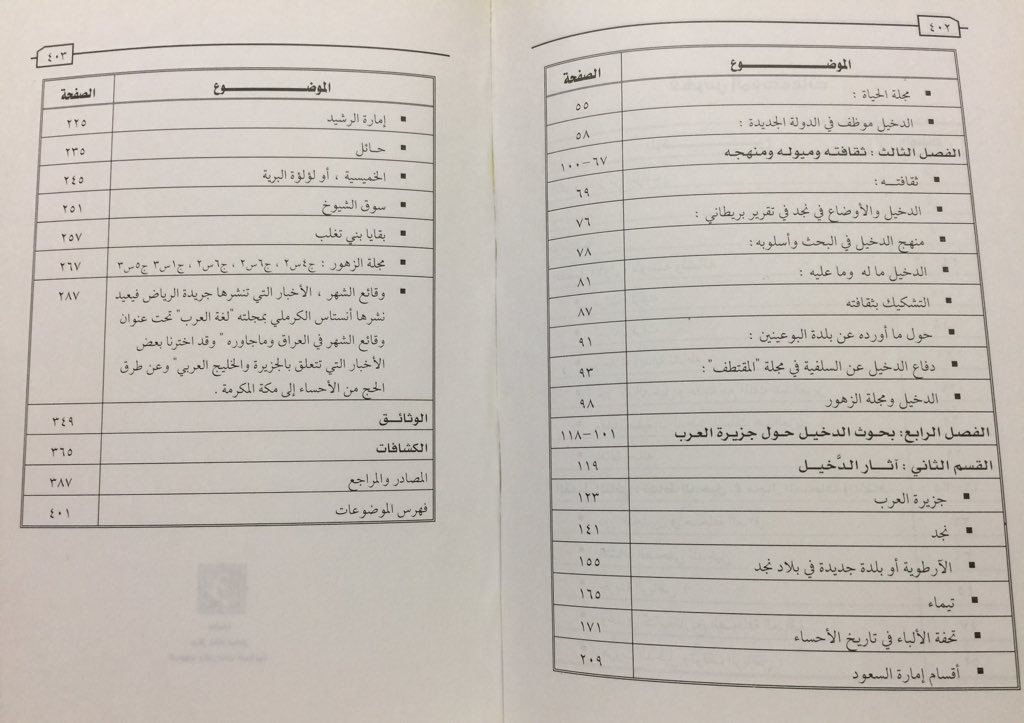 ٤٠٢
الموضوع الصفحة
▪ مجلة الحياة : ٥٥
▪ الدخيل موظف في الدولة الجديدة : ٥٨
الفصل الثالث : ثقافته وميوله ومنهجه ٦٧-١٠٠
▪ ثقافته : ٦٩
▪ الدخيل والأوضاع في نجد في تقرير بريطاني : ٧٦
▪ منهج الدخيل في البحث وأسلوبه : ٧٨
▪ الدخيل ما له وما عليه : ٨١
▪ التشكيك بثقافته ٨٧
▪ حول ما أورده عن بلدة البوعينين : ٩١
▪ دفاع الدخيل عن السلفية في مجلة "المقتطف" : ٩٣
▪ الدخيل ومجلة الزهور ٩٨
الفصل الرابع: بحوث الدخيل حول جزيرة العرب ١٠١-١١٨
القسم الثاني : آثار الدَّخيل ١١٩
▪ جزيرة العرب ١٢٣
▪ نجد ١٤١
▪ الآرطوية أو بلدة جديدة في بلاد نجد ١٥٥
▪ تيماء ١٦٥
▪ تحفة الألباء في تاريخ الأحساء ١٧١
▪ أقسام إمارة السعود ٢٠٩
٤٠٣
الموضوع الصفحة
▪ إمارة الرشيد ٢٢٥
▪ حائل ٢٣٥
▪ الخميسية ، أو لؤلؤة البرية ٢٤٥
▪ سوق الشيوخ ٢٥١
▪ بقايا بني تغلب ٢٥٧
▪ مجلة الزهور : ج٤س٢ ، ج٦س٢ ، ج٦س٢ ، ج١س٣ ج٥س٣ ٢٦٧
▪ وقائع الشهر ، الأخبار التي تنشرها جريدة الرياض فيعيد ٢٨٧
نشرها أنستاس الكرملي بمجلته "لغة العرب" تحت عنوان
وقائع الشهر في العراق وماجاوره "وقد اخترنا بعض
الأخبار التي تتعلق بالجزيرة والخليج العربي" وعن طرق
الحج من الأحساء إلى مكة المكرمة .
الوثائق ٣٤٩
الكشافات ٣٦٥
المصادر والمراجع ٣٨٧
فهرس الموضوعات ٤٠١